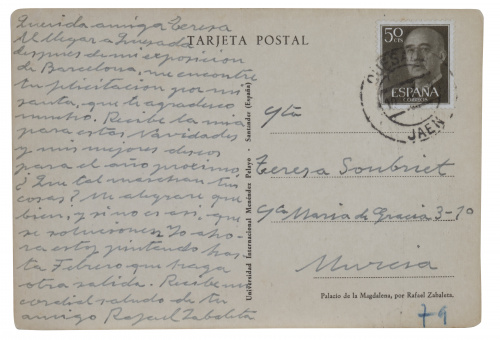 Querida amiga Teresa
Al llegar a Quesada
despues de mi exposicion
de Barcelona, me encontre
tu felicitacion por mi
santo, que te agradezco
mucho. Recibe la mia
para estas Navidades
y mis mejores deseos
para el año proximo.
¿Que tal marchan tus
cosas? Me alegrare que
bien, y si no es asi, que
se solucionen. Yo aho-
ra estoy pintando has-
ta Febrero que haga
otra salida. Recibe un
cordial saludo de tu
amigo Rafael Zabaleta
TARJETA POSTAL
Universidad Internacional Menéndez Pelayo - Santander (España)
50
CTS
ESPAÑA
CORREOS
QUESADA
JAEN
Srta
Teresa Soubriet
C/ Maria de Gracia 3-1º
Murcia
Palacio de la Magdalena, por Rafael Zabaleta.
79